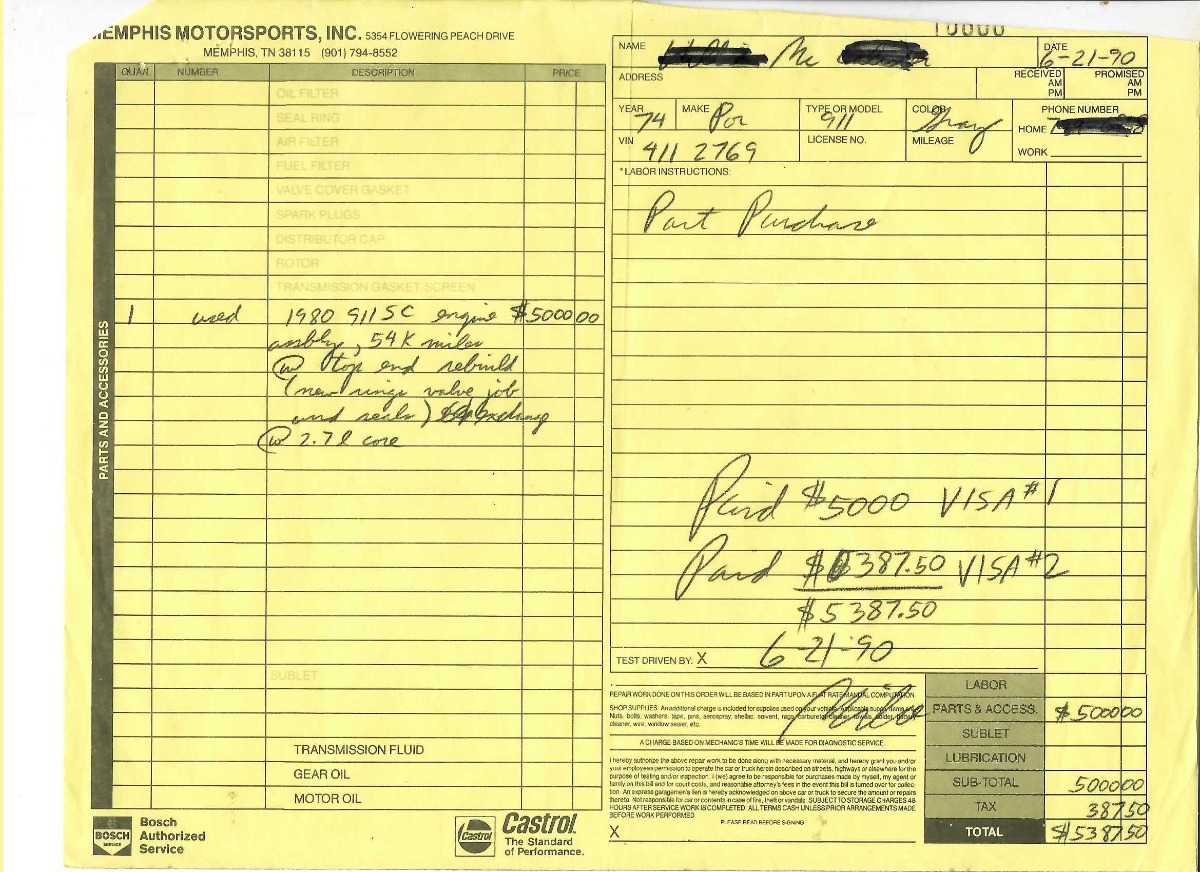 EMPHIS MOTORSPORTS, INC. 5354 FLOWERING PEACH DRIVE
MEMPHIS, TN 38115 (901) 794-8552
QUAN. NUMBER DESCRIPTION PRICE
OIL FILTER
SEAL RING
AIR FILTER
FUEL FILTER
VALVE COVER GASKET
SPARK PLUGS
DISTRIBUTOR CAP
ROTOR
TRANSMISSION GASKET-SCREEN
1 used 1980 911 SC engine $5000 00
assbly, 54K miles
w top end rebuild
(new rings valve job
and seals) exchange
w 2.7 l core
PARTS AND ACCESSORIES
SUBLET
TRANSMISSION FLUID
GEAR OIL
MOTOR OIL
BOSCH
SERVICE
Bosch
Authorized
Service
Castrol
Castrol
The Standard
of Performance.
NAME Mc
DATE
6-21-90
ADDRESS
RECEIVED PROMISED
AM AM
PM PM
YEAR 74 MAKE Por TYPE OR MODEL 911 COLOR Gray
PHONE NUMBER
HOME
WORK
VIN 411 2769 LICENSE NO. MILEAGE
*LABOR INSTRUCTIONS:
Part Purchase
Paid $5000 VISA #1
Paid $387.50 VISA #2
$5387.50
6-21-90
TEST DRIVEN BY: X
REPAIR WORK DONE ON THIS ORDER WILL BE BASED IN PART UPON A FLAT RATE MANUAL COMPILATION.
SHOP SUPPLIES: An additional charge is included for supplies used on your vehicle. Applicable supply items are:
Nuts, bolts, washers, tape, pins, aerospray, shellac, solvent, rags, carburetor cleaner, towels, solder, battery
cleaner, wire, window sealer, etc.
A CHARGE BASED ON MECHANIC'S TIME WILL BE MADE FOR DIAGNOSTIC SERVICE.
I hereby authorize the above repair work to be done along with necessary material, and hereby grant you and/or
your employees permission to operate the car or truck herein described on streets, highways or elsewhere for the
purpose of testing and/or inspection. I (we) agree to be responsible for purchases made by myself, my agent or
family on this bill and for court costs, and reasonable attorney's fees in the event this bill is turned over for collec-
tion. An express garagemen's lien is hereby acknowledged on above car or truck to secure the amount or repairs
thereto. Not responsible for car or contents in case of fire, theft or vandals. SUBJECT TO STORAGE CHARGES 48
HOURS AFTER SERVICE WORK IS COMPLETED. ALL TERMS CASH UNLESS PRIOR ARRANGEMENTS MADE
BEFORE WORK PERFORMED.
PLEASE READ BEFORE SIGNING
X
LABOR
PARTS & ACCESS. $5000 00
SUBLET
LUBRICATION
SUB-TOTAL 5000 00
TAX 387 50
TOTAL $5387 50